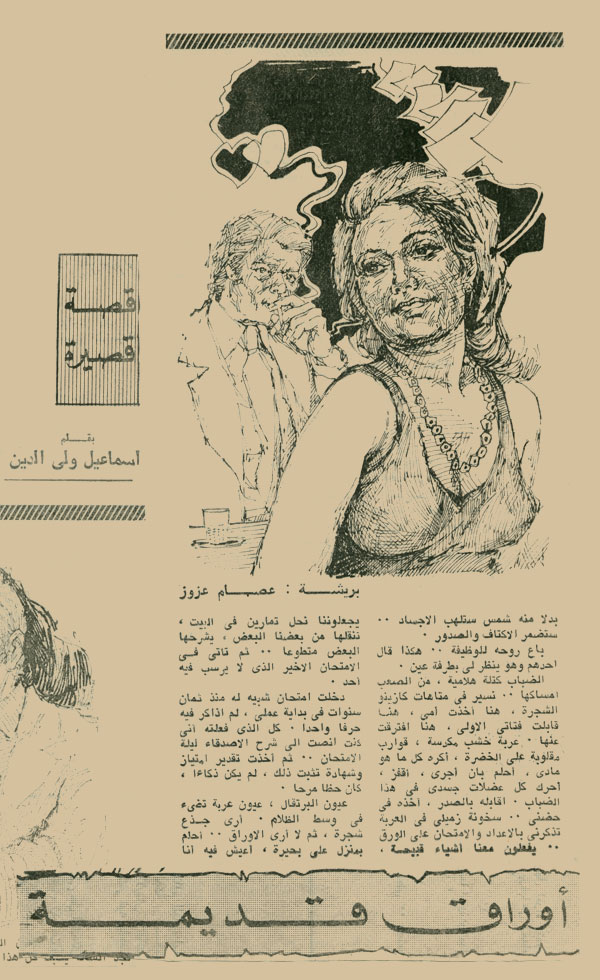 قصة
قصيرة
بقلم
اسماعيل ولى الدين
بريشة : عصام عزوز
بدلا منه شمس ستلهب الاجساد ..
ستضمر الاكتاف والصدور .
باع روحه للوظيفة .. هكذا قال
احدهم وهو ينظر لى بطرفة عين .
الضباب كتلة هلامية ، من الصعب
امساكها .. نسير فى متاهات كازينو
الشجرة ، هنا أخذت أمى ، هنا
قابلت فتاتى الاولى ، هنا افترقت
عنها . عربة خشب مكرسة ، قوارب
مقلوبة على الخضرة ، أكره كل ما هو
مادى ، أحلم بأن أجرى ، أقفز ،
أحرك كل عضلات جسدى فى هذا
الضباب . اقابله بالصدر ، آخذه فى
حضنى .. سخونة زميلى فى العربة
تذكرنى بالاعداد والامتحان على الورق
.. يفعلون معنا أشياء قبيحة ،
يجعلوننا نحل تمارين فى البيت ،
ننقلها من بعضنا البعض ، يشرحها
البعض متطوعا .. ثم تأتى فى
الامتحان الاخير الذى لا يرسب فيه
أحد .
دخلت امتحان شبيه له منذ ثمان
سنوات فى بداية عملى ، لم اذاكر فيه
حرفا واحدا . كل الذى فعلته أنى
كنت انصت الى شرح الاصدقاء ليلة
الامتحان .. ثم أخذت تقدير امتياز
وشهادة تثبت ذلك ، لم يكن ذكاءا ،
كان حظا مرحا .
عيون البرتقال ، عيون عربة تضىء
فى وسط الظلام . أرى جذع
شجرة ، ثم لا أرى الاوراق .. أحلم
بمنزل على بحيرة ، أعيش فيه أنا
أوراق قديمة